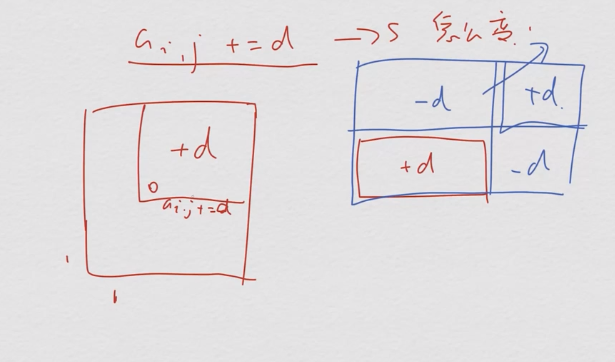 a i,j += d → s 怎么变.
+d
a i,j += d
1
1
-d
+d.
+d
-d